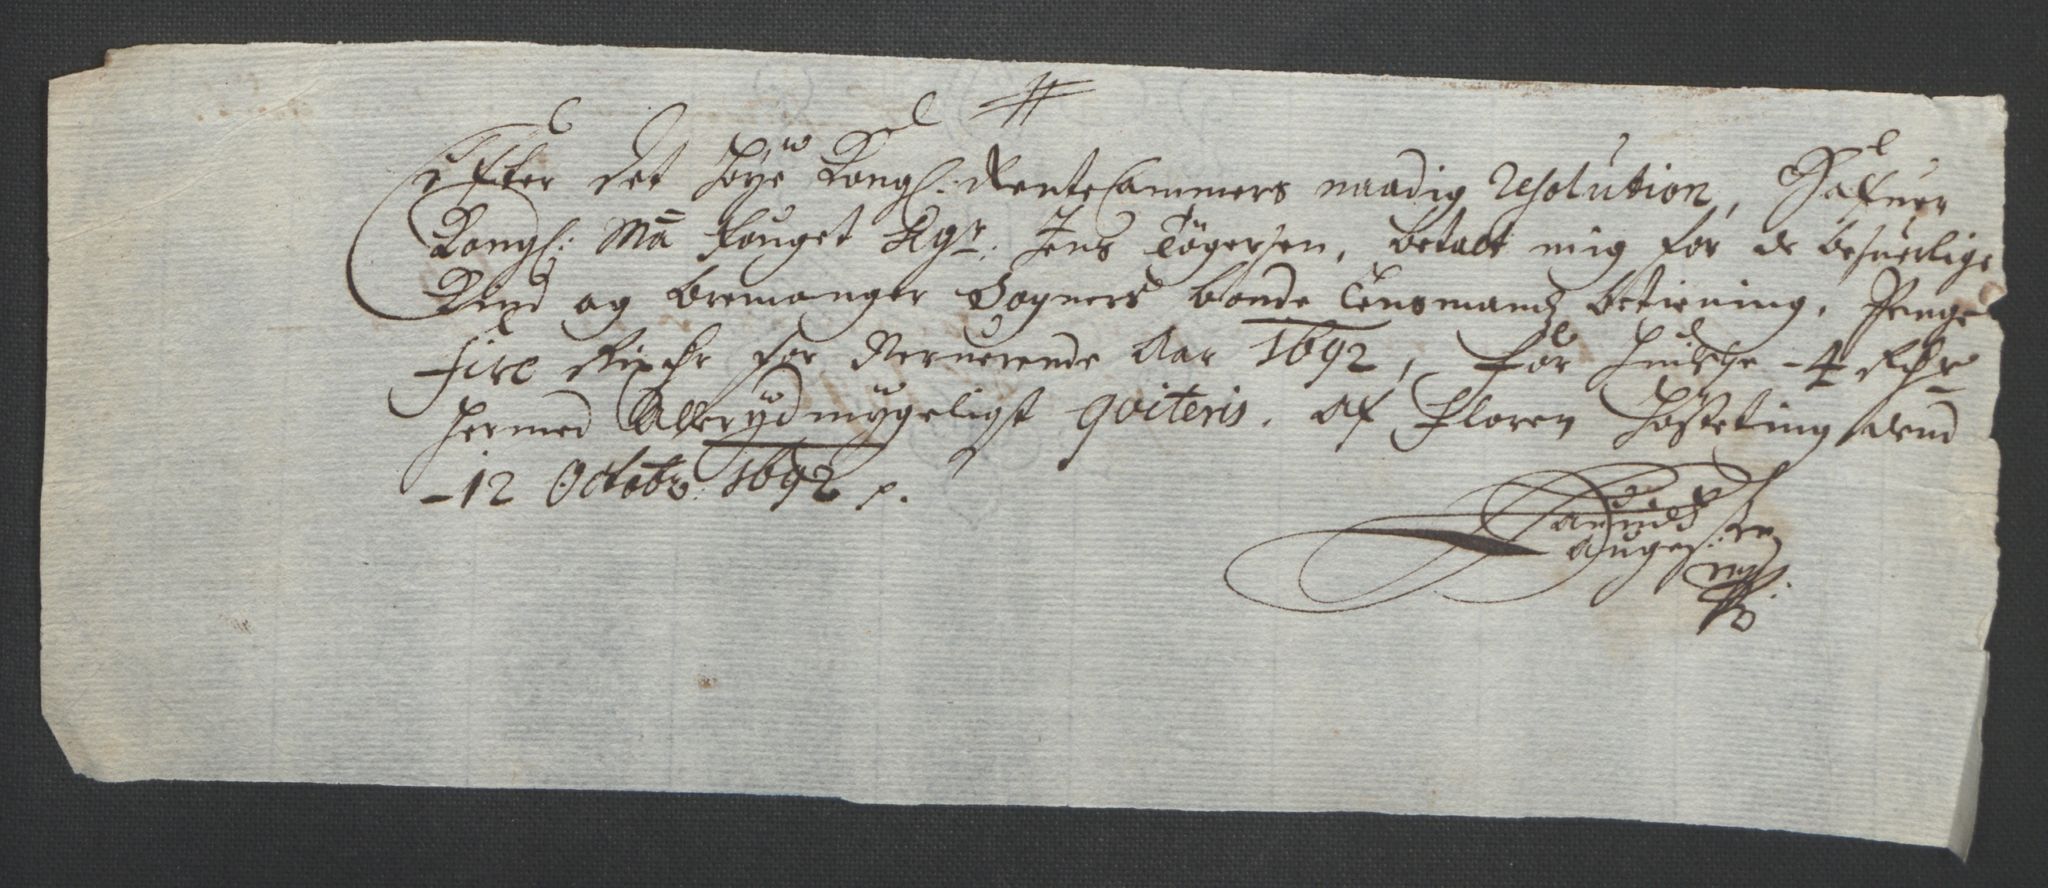 Efter det høye Kongl: RenteCammers naadig resolution, Hafuer
Kongl: Maÿ fouget Sgr. Jens Tøgersen, betalt mig for de besuerlige
Kind og Bremanger Sogners bonde Lensmandz betiening, Penge
fire Rixdr for Nerverende Aar 1692, for huilche -4 Rdr
hermed Allerydmygeligst qviteris. Af Floren Høsteting dend
-12 Octobr: 1692 p.